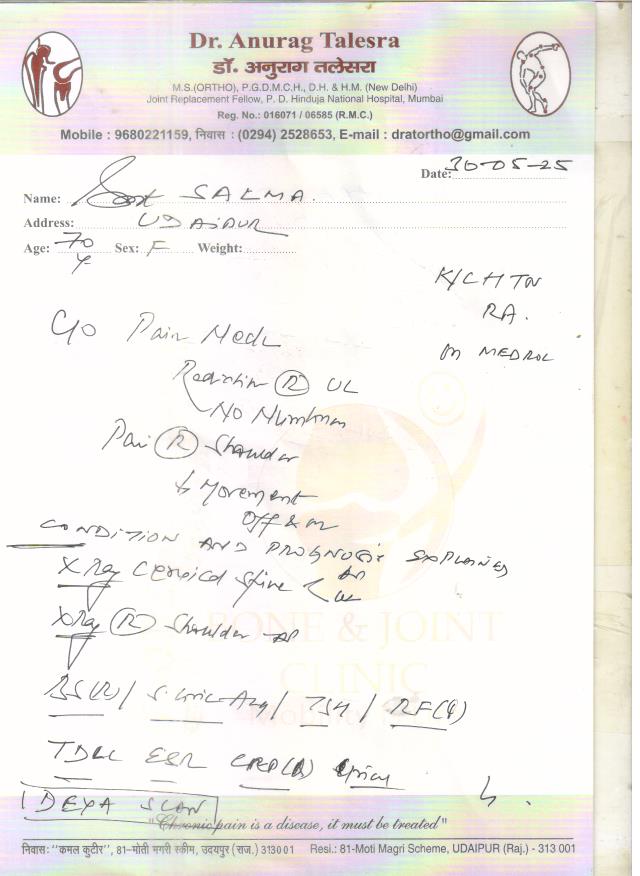 Dr. Anurag Talesra
डॉ. अनुराग तलेसरा
M.S.(ORTHO), P.G.D.M.C.H., D.H. & H.M. (New Delhi)
Joint Replacement Fellow, P. D. Hinduja National Hospital, Mumbai
Reg. No.: 016071 / 06585 (R.M.C.)
Mobile : 9680221159, निवास : (0294) 2528653, E-mail : dratortho@gmail.com
Date: 30-05-25
Name: SALMA.
Address: UDAIPUR
Age: 70 Y Sex: F Weight:
K/C HTN
RA.
on MEDROL
C/o Pain Neck
Radiation (R) UL
No Numbness
Pain (R) Shoulder
↓ Movement
Off & on
CONDITION AND PROGNOSIS EXPLAINED
X Ray Cervical Spine
X Ray (R) Shoulder AP
BONE & JOINT
CLINIC
BS(R) / S. Uric Acid / TSH / RF(Q)
TDLC ESR CRP(Q)
DEXA SCAN
"Chronic pain is a disease, it must be treated"
निवास: "कमल कुटीर", 81-मोती मगरी स्कीम, उदयपुर (राज.) 313001 Resi.: 81-Moti Magri Scheme, UDAIPUR (Raj.) - 313 001